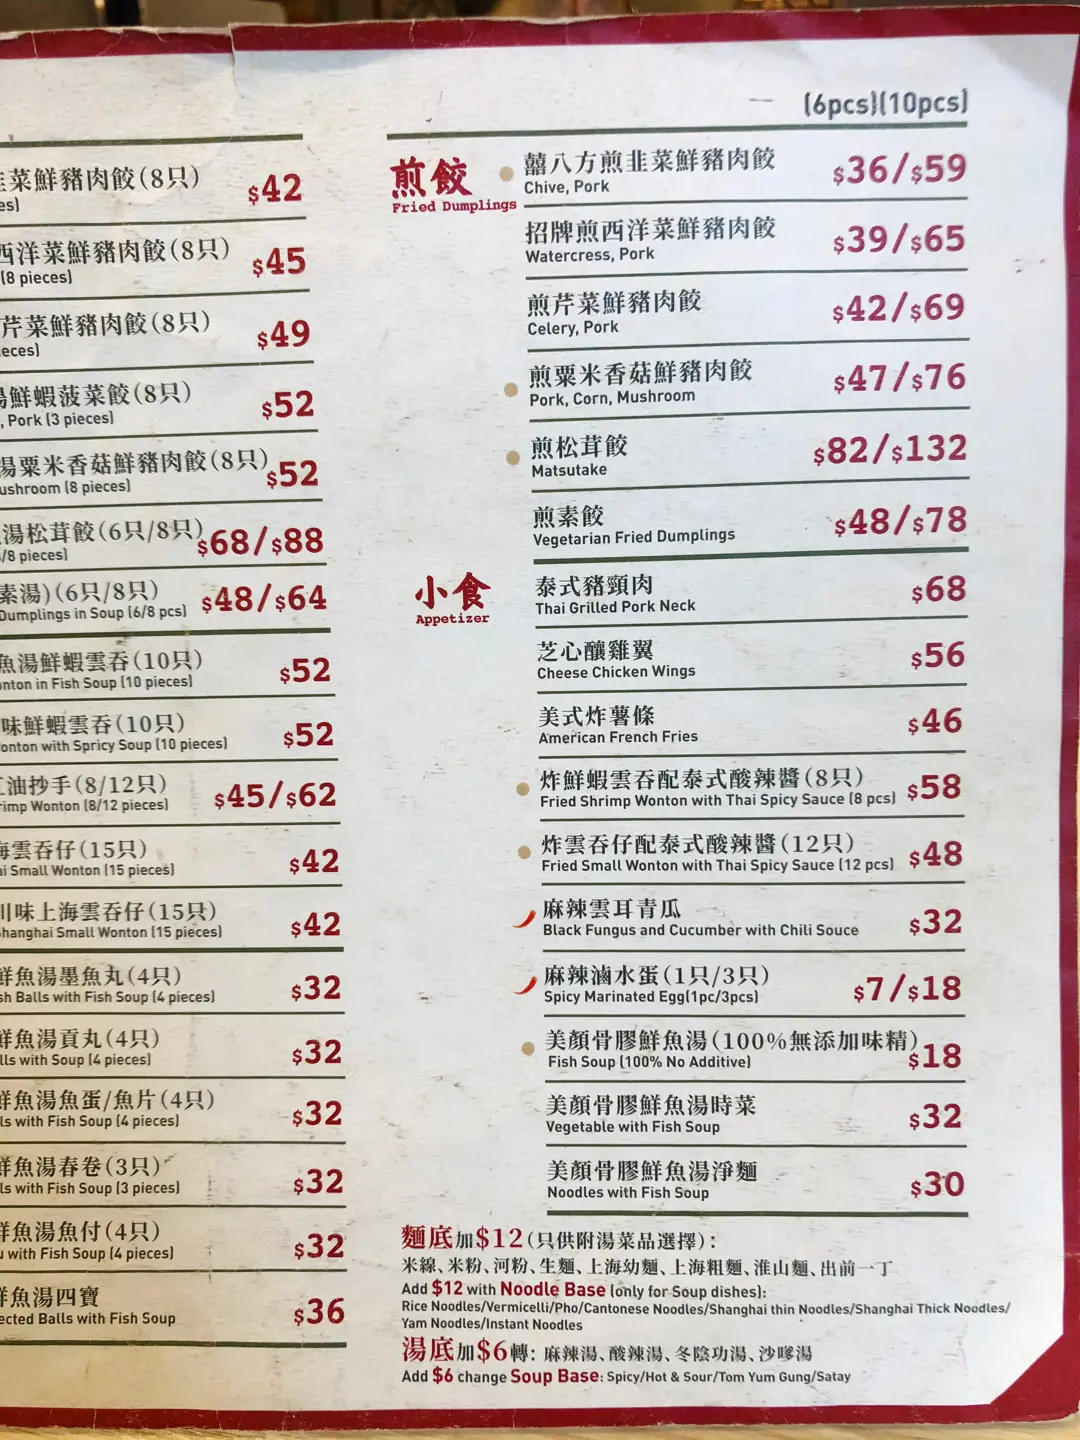 菜鮮豬肉餃(8只) $42
es)
西洋菜鮮豬肉餃(8只) $45
(8 pieces)
芹菜鮮豬肉餃(8只) $49
eces)
鮮蝦菠菜餃(8只) $52
, Pork (3 pieces)
湯粟米香菇鮮豬肉餃(8只) $52
ushroom (8 pieces)
湯松茸餃(6只/8只) $68/$88
/8 pieces)
素湯)(6只/8只) $48/$64
Dumplings in Soup (6/8 pcs)
魚湯鮮蝦雲吞(10只) $52
onton in Fish Soup (10 pieces)
味鮮蝦雲吞(10只) $52
onton with Spricy Soup (10 pieces)
油抄手(8/12只) $45/$62
rimp Wonton (8/12 pieces)
海雲吞仔(15只) $42
ai Small Wonton (15 pieces)
川味上海雲吞仔(15只) $42
hanghai Small Wonton (15 pieces)
鮮魚湯墨魚丸(4只) $32
sh Balls with Fish Soup (4 pieces)
鮮魚湯貢丸(4只) $32
lls with Soup (4 pieces)
鮮魚湯魚蛋/魚片(4只) $32
ls with Fish Soup (4 pieces)
鮮魚湯春卷(3只) $32
ls with Fish Soup (3 pieces)
鮮魚湯魚付(4只) $32
u with Fish Soup (4 pieces)
鮮魚湯四寶 $36
ected Balls with Fish Soup
(6pcs)(10pcs)
煎餃
Fried Dumplings
囍八方煎韭菜鮮豬肉餃 $36/$59
Chive, Pork
招牌煎西洋菜鮮豬肉餃 $39/$65
Watercress, Pork
煎芹菜鮮豬肉餃 $42/$69
Celery, Pork
煎粟米香菇鮮豬肉餃 $47/$76
Pork, Corn, Mushroom
煎松茸餃 $82/$132
Matsutake
煎素餃 $48/$78
Vegetarian Fried Dumplings
小食
Appetizer
泰式豬頸肉 $68
Thai Grilled Pork Neck
芝心釀雞翼 $56
Cheese Chicken Wings
美式炸薯條 $46
American French Fries
炸鮮蝦雲吞配泰式酸辣醬(8只) $58
Fried Shrimp Wonton with Thai Spicy Sauce (8 pcs)
炸雲吞仔配泰式酸辣醬(12只) $48
Fried Small Wonton with Thai Spicy Sauce (12 pcs)
麻辣雲耳青瓜 $32
Black Fungus and Cucumber with Chili Souce
麻辣滷水蛋(1只/3只) $7/$18
Spicy Marinated Egg(1pc/3pcs)
美顏骨膠鮮魚湯(100%無添加味精) $18
Fish Soup (100% No Additive)
美顏骨膠鮮魚湯時菜 $32
Vegetable with Fish Soup
美顏骨膠鮮魚湯淨麵 $30
Noodles with Fish Soup
麵底加$12(只供附湯菜品選擇):
米線、米粉、河粉、生麵、上海幼麵、上海粗麵、淮山麵、出前一丁
Add $12 with Noodle Base (only for Soup dishes):
Rice Noodles/Vermicelli/Pho/Cantonese Noodles/Shanghai thin Noodles/Shanghai Thick Noodles/
Yam Noodles/Instant Noodles
湯底加$6轉: 麻辣湯、酸辣湯、冬陰功湯、沙嗲湯
Add $6 change Soup Base: Spicy/Hot & Sour/Tom Yum Gung/Satay